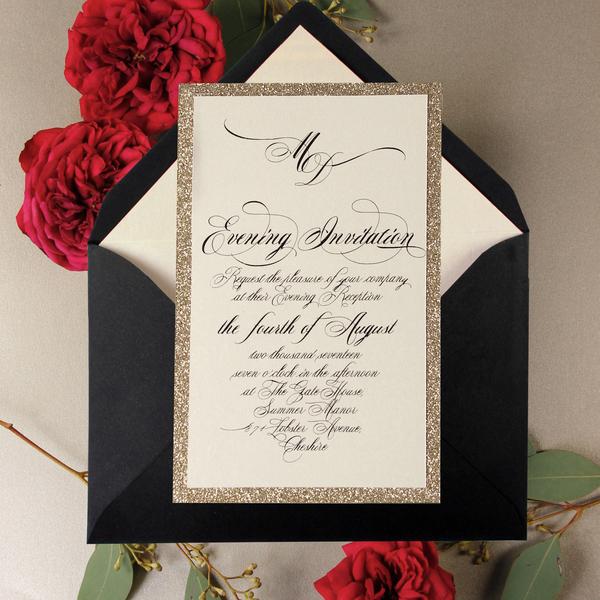 MD
Evening Invitation
Request the pleasure of your company
at their Evening Reception
the fourth of August
two thousand seventeen
seven o'clock in the afternoon
at The Gate House,
Summer Manor
Lobster Avenue,
Cheshire